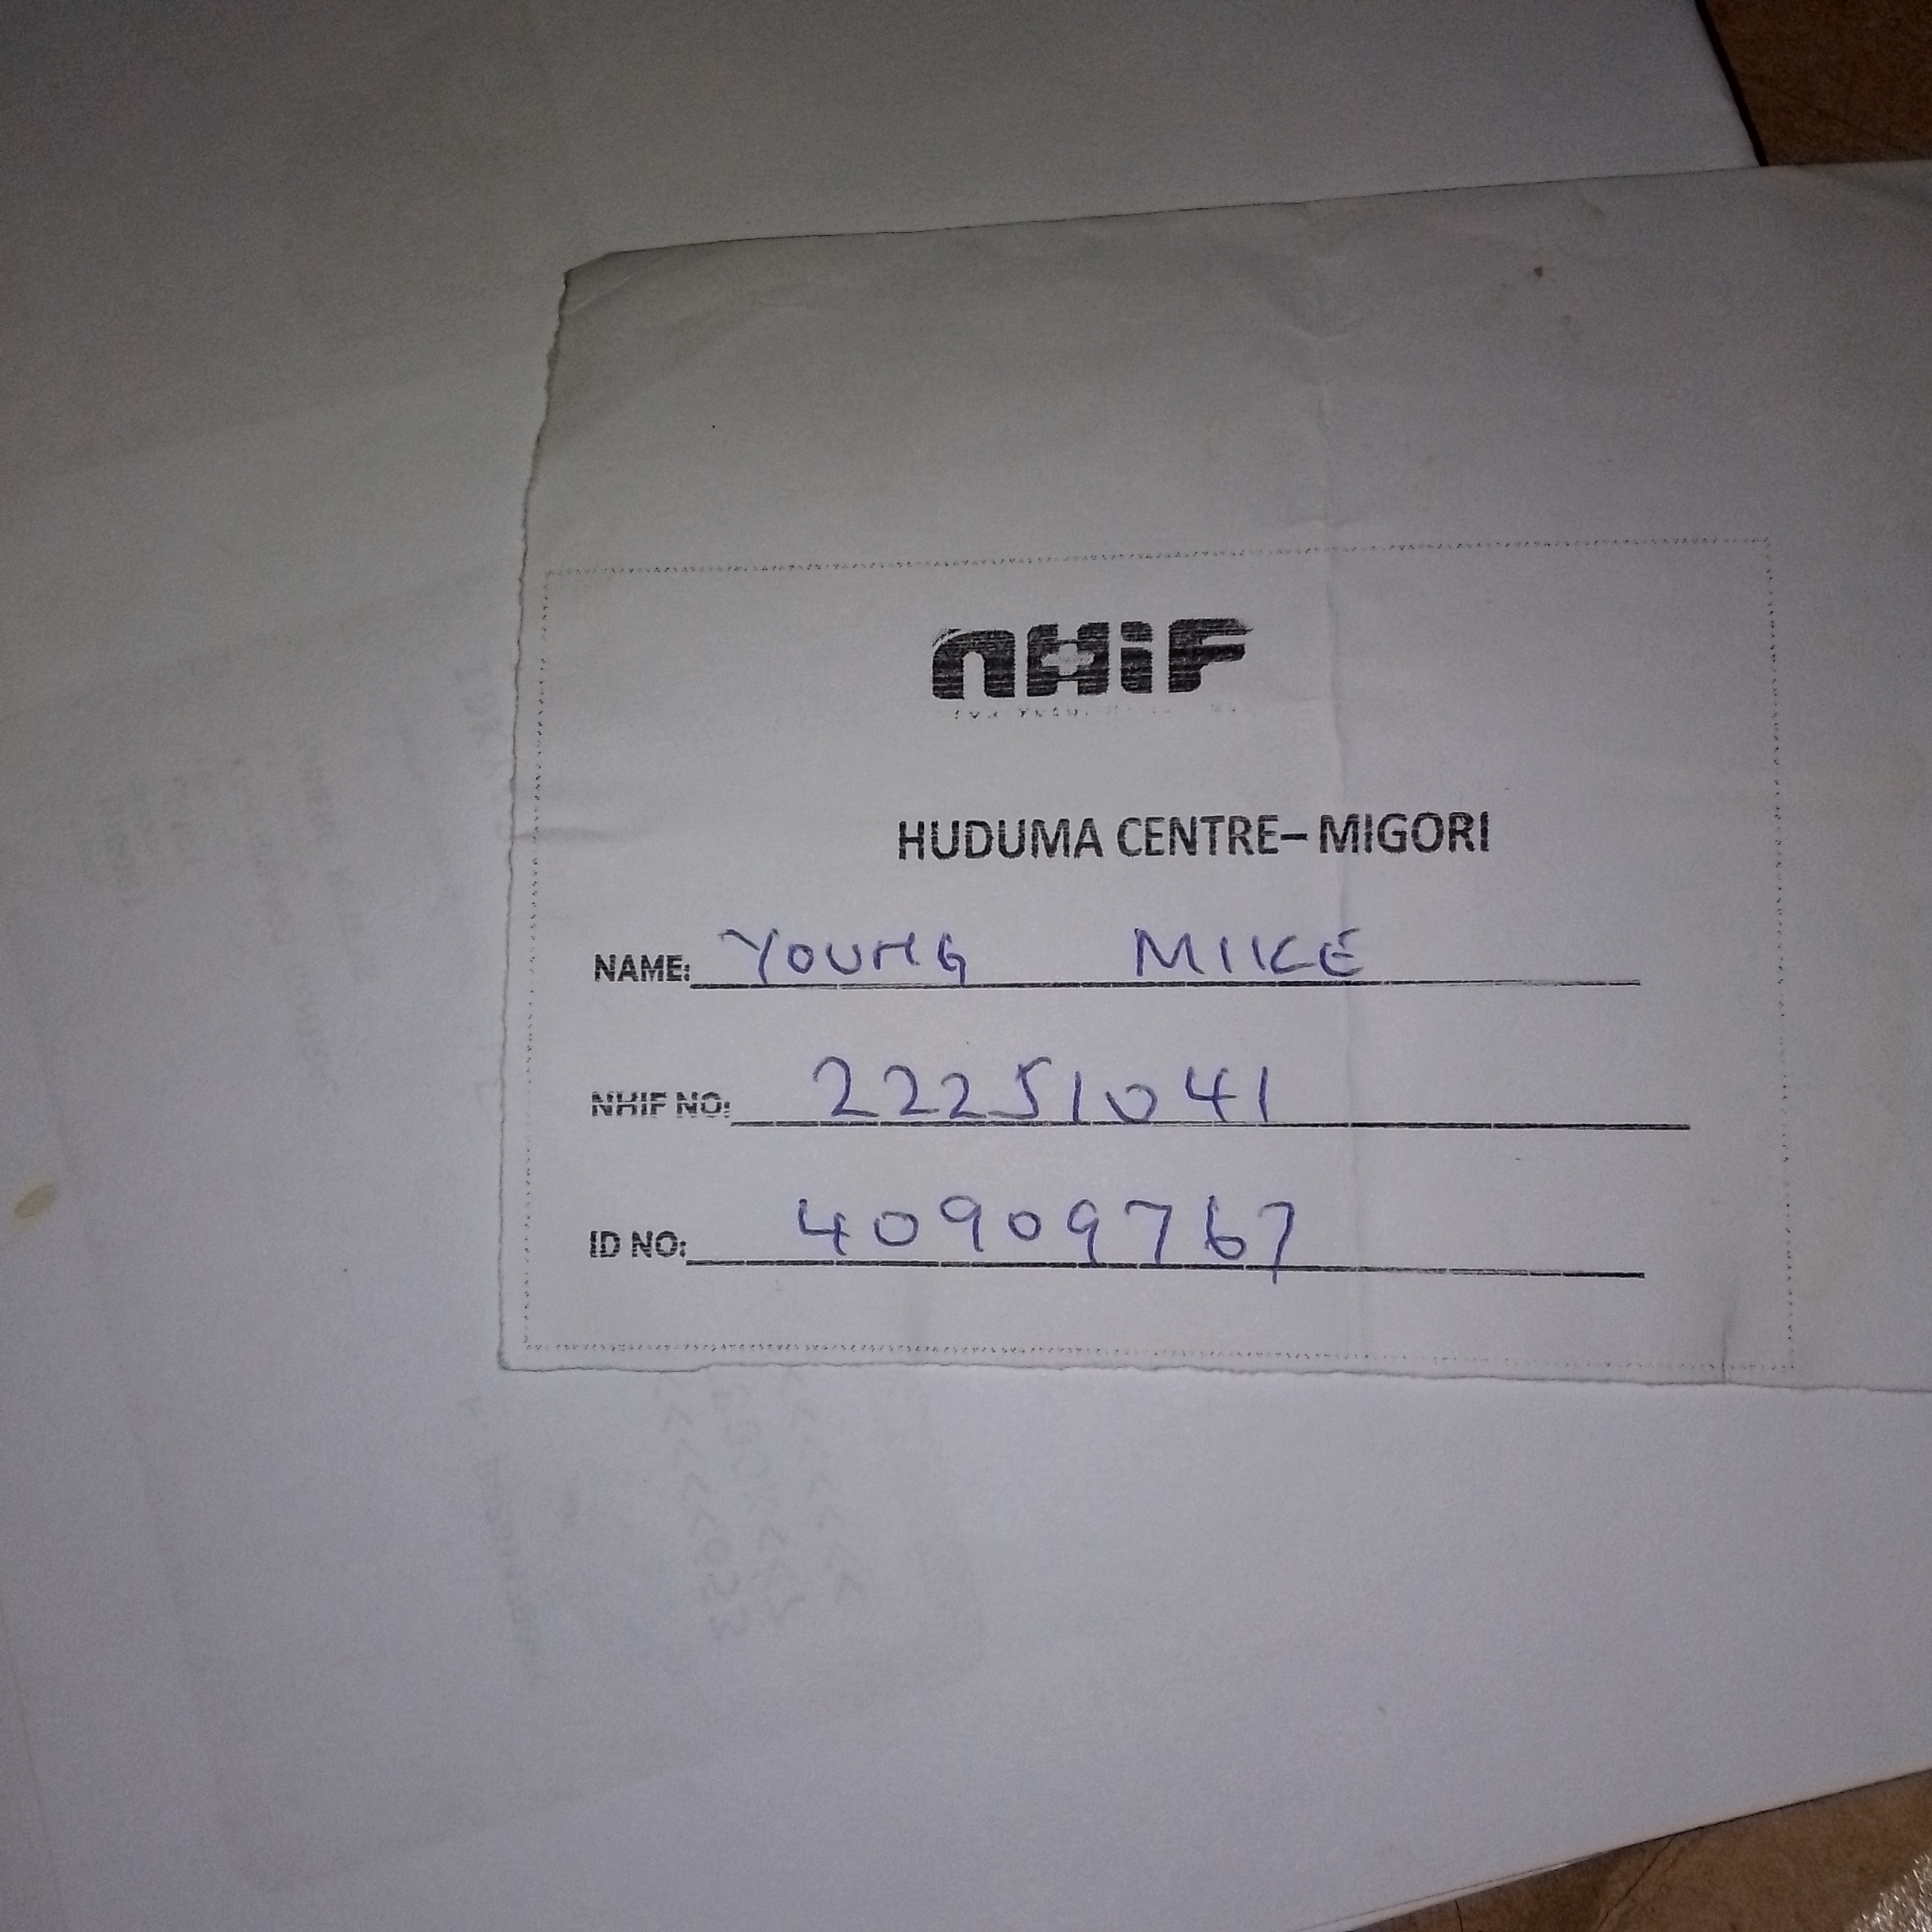 nHiF
HUDUMA CENTRE– MIGORI
NAME: YOUNG MIKE
NHIF NO: 22251041
ID NO: 40909767